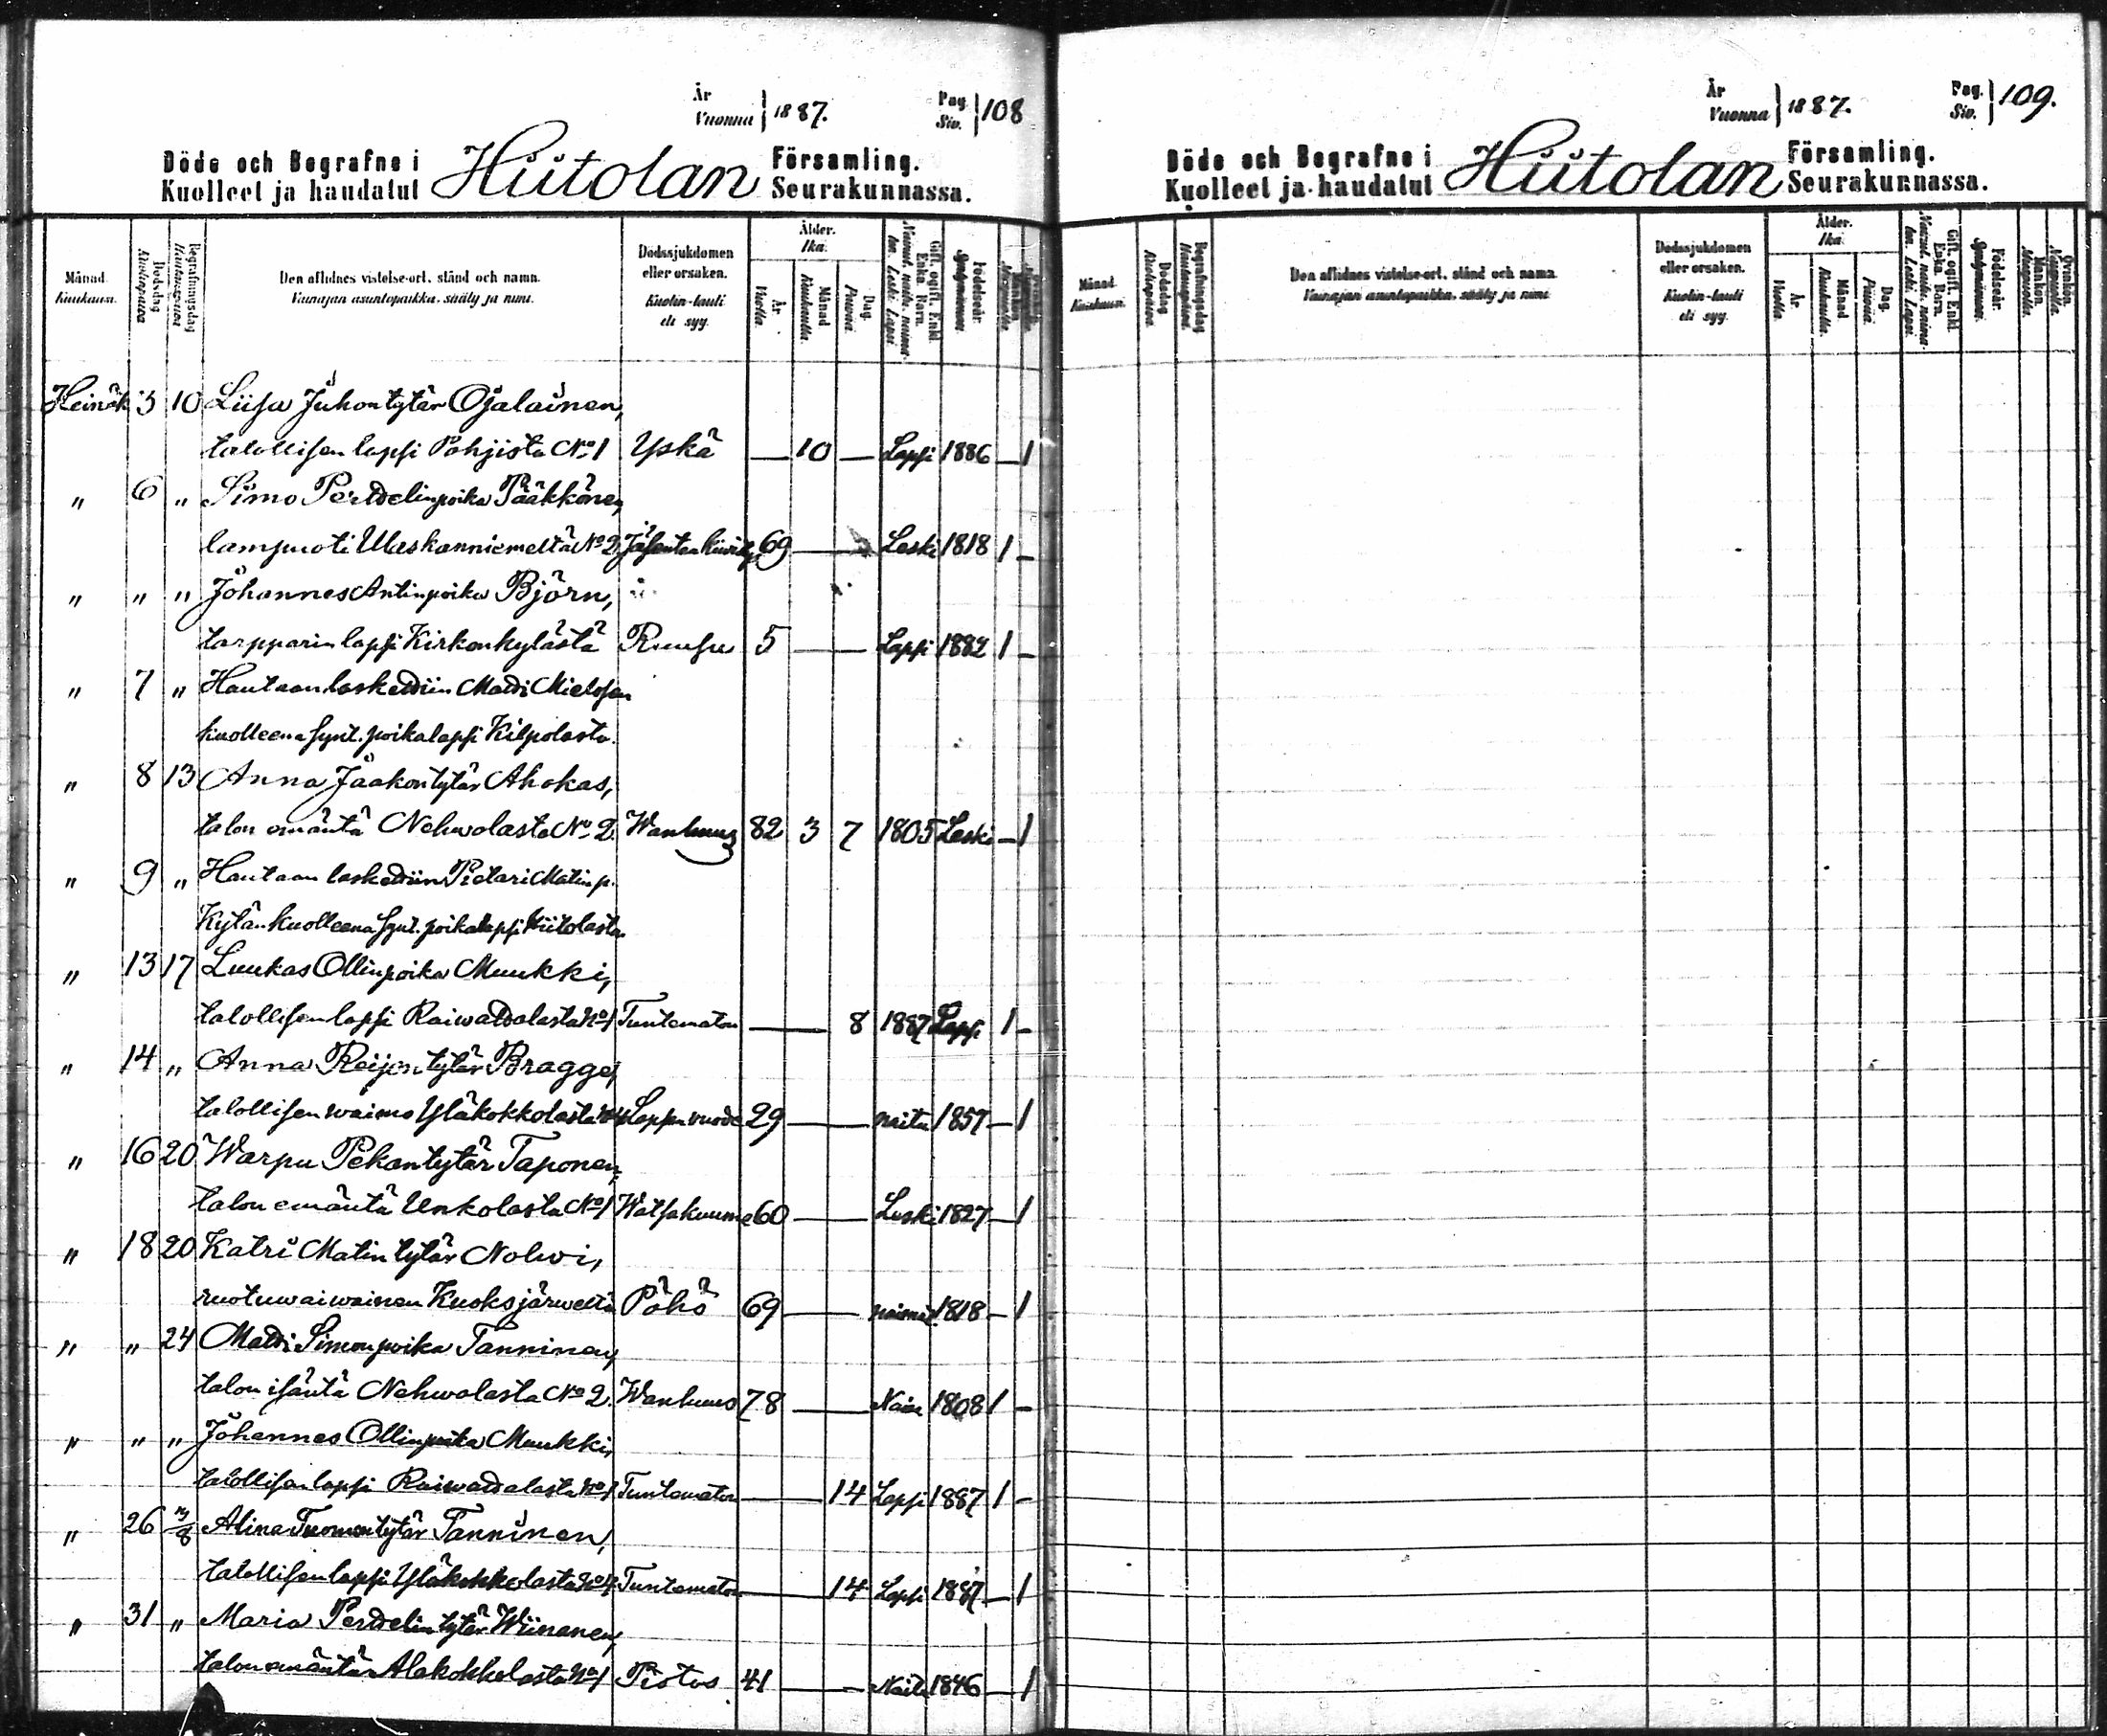 År
Vuonna } 1887.
Pag.
Siv. } 108
Döde och Begrafne i Hiitolan Församling.
Kuolleet ja haudatut Seurakunnassa.
Månad.
Kuukausi.
Dödsdag
Kuolinpäivä
Begrafningsdag
Hautauspäivä
Den aflidnes vistelse-ort, stånd och namn.
Vainajan asuntopaikka, sääty ja nimi.
Dödssjukdomen eller orsaken.
Kuolin-tauti eli syy.
Ålder.
Ikä.
År. Vuotta.
Månad. Kuukautta.
Dag. Päivää.
Gift, ogift, Enkl. Enka, Barn.
Födelseår.
Mankön.
Heinäk 3 10 Liisa Juhontytär Ojalainen,
talollisen lapsi Pohjista No 1 Yskä — 10 — Lapsi 1886 — 1
" 6 " Simo Perttelinpoika Pääkkönen,
lampuoti Ulaskanniemeltä No 2. 69 — Leski 1818 1 —
" " " Johannes Antinpoika Björn,
torpparin lapsi Kirkonkylästä Ruusu 5 — Lapsi 1882 1 —
" 7 " Hautaan laskettiin Matti Mielosen
kuolleena synt. poikalapsi Kilpolasta.
" 8 13 Anna Jaakontytär Ahokas,
talon emäntä Nehwolasta No 2. Wanhuus 82 3 7 1805 Leski — 1
" 9 " Hautaan laskettiin Pietari Matinp.
Kytän kuolleena synt. poikalapsi Hiitolasta
" 13 17 Luukas Ollinpoika Muukki,
talollisen lapsi Raiwattalasta No 1 Tuntematon — 8 1887 Lapsi 1 —
" 14 " Anna Reijontytär Bragge,
talollisen waimo Yläkokkolasta Lapsenvuode 29 — naitu 1857 — 1
" 16 20 Warpu Pekantytär Taponen,
talon emäntä Unkolasta No 1 Watsakuume 60 — Leski 1827 — 1
" 18 20 Katri Matintytär Nolwi,
ruotuwaiwainen Kuoksjärweltä Pöhö 69 — 1818 — 1
" " 24 Matti Simonpoika Tanninen,
talon isäntä Nehwolasta No 2. Wanhuus 78 — Nain. 1808 1 —
" " " Johannes Ollinpoika Muukki,
talollisen lapsi Raiwattalasta No 1 Tuntematon — 14 Lapsi 1887 1 —
" 26 Alina Tuomontytär Tanninen,
talollisen lapsi Yläkokkolasta Tuntematon — 14 Lapsi 1887 — 1
" 31 " Maria Perttelintytär Wiinanen,
talon emäntä Alakokkolasta No 1 Pistos 41 — Naitu 1846 — 1
År
Vuonna } 1887.
Pag.
Siv. } 109.
Döde och Begrafne i Hiitolan Församling.
Kuolleet ja haudatut Seurakunnassa.
Månad.
Kuukausi.
Dödsdag
Kuolinpäivä.
Begrafningsdag
Hautauspäivä.
Den aflidnes vistelse-ort, stånd och namn.
Vainajan asuntopaikka, sääty ja nimi.
Dödssjukdomen eller orsaken.
Kuolin-tauti eli syy.
Ålder.
Ikä.
År. Vuotta.
Månad. Kuukautta.
Dag. Päivää.
Gift, ogift, Enkl. Enka, Barn.
Födelseår.
Mankön.
Qvinkön.